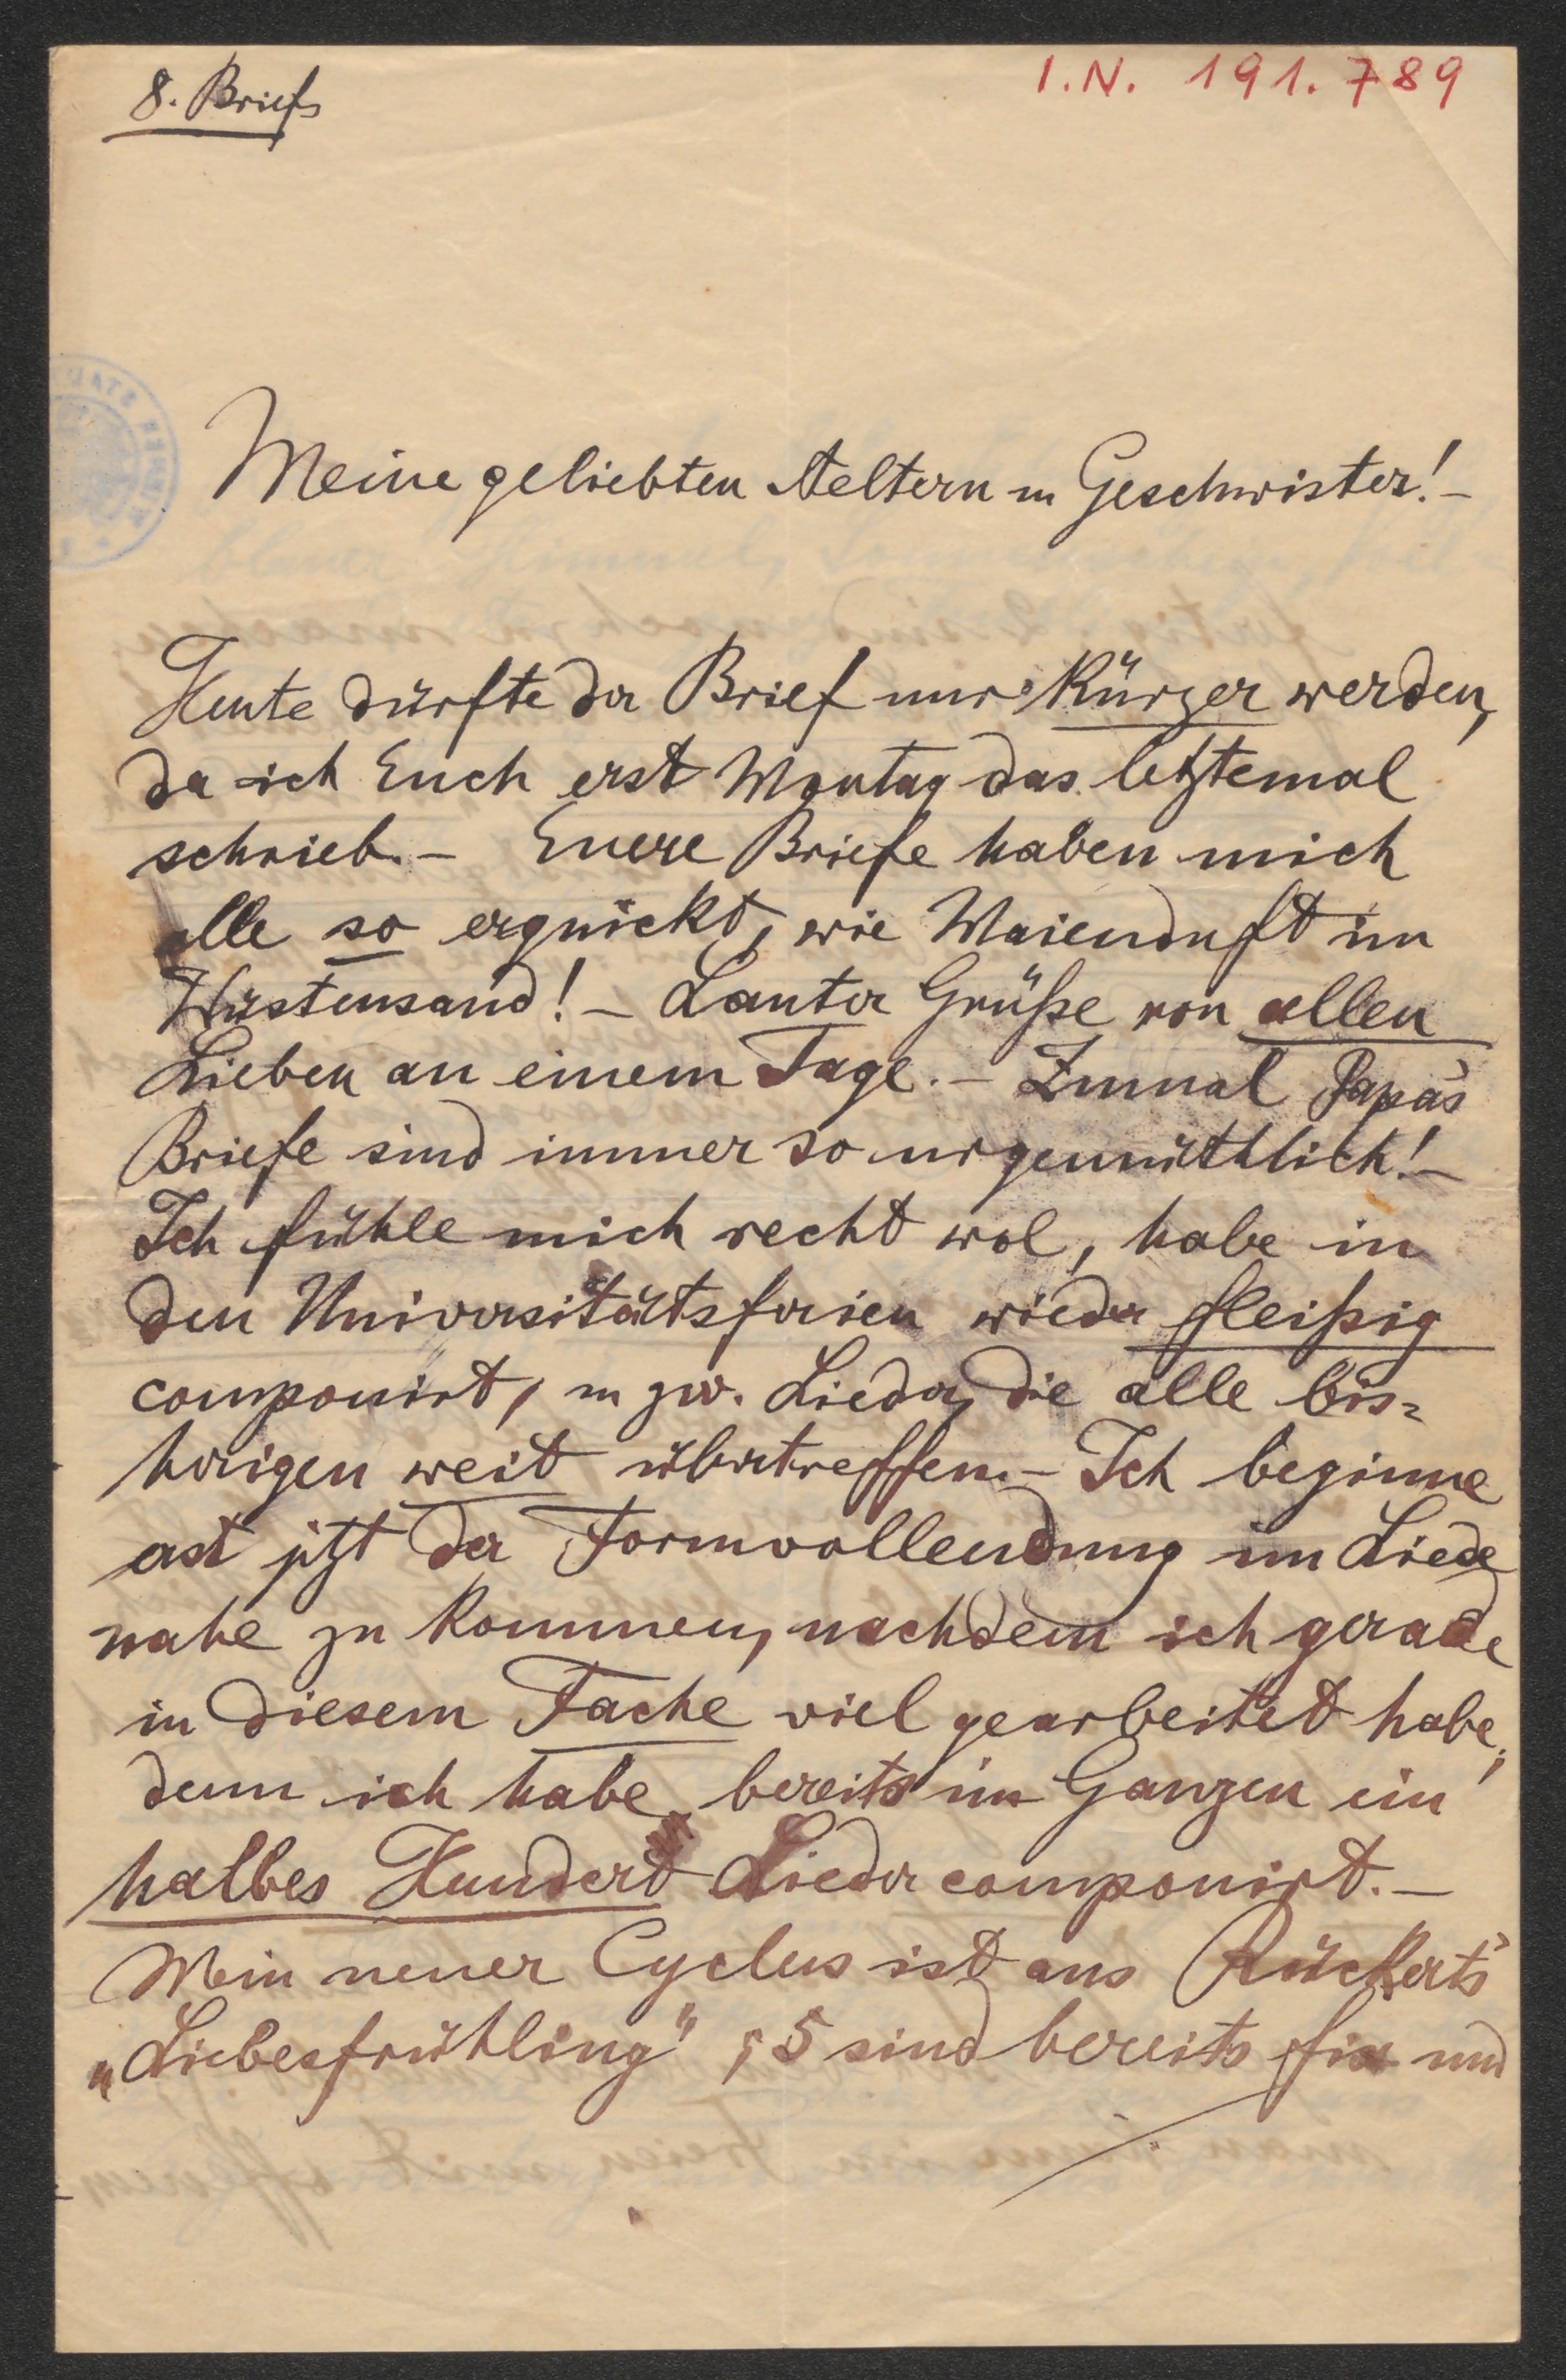 8. Brief
I.N. 191.789
Meine geliebten Aeltern u Geschwister! –
Heute dürfte der Brief nur kürzer werden,
da ich Euch erst Montag das letztemal
schrieb. – Euere Briefe haben mich
alle so erquickt, wie Maienduft im
Wüstensand! – Lauter Grüße von allen
Lieben an einem Tage. – Zumal Papa's
Briefe sind immer so urgemüthlich! –
Ich fühle mich recht wol, habe in
den Universitätsferien wieder fleißig
componirt, u zw. Lieder, die alle bis=
herigen weit übertreffen. – Ich beginne
erst jetzt der Formvollendung im Liede
nahe zu kommen, nachdem ich gerade
in diesem Fache viel gearbeitet habe,
denn ich habe bereits im Ganzen ein
halbes Hundert Lieder componirt. –
Mein neuer Cyclus ist aus Rückert's
„Liebesfrühling"; 5 sind bereits fix und